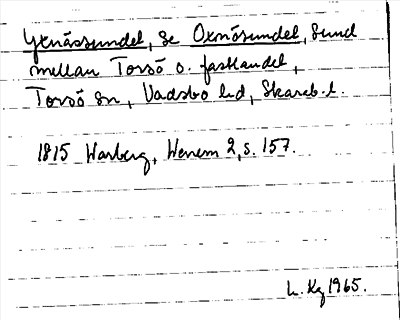 Yxnåssundet, se Oxnåsundet, Sund
mellan Torsö o. fastlandet,
Torsö sn, Vadsbo hd, Skarab. l.
1815 Warberg, Wenern 2, s. 157.
L. Kg 1965.